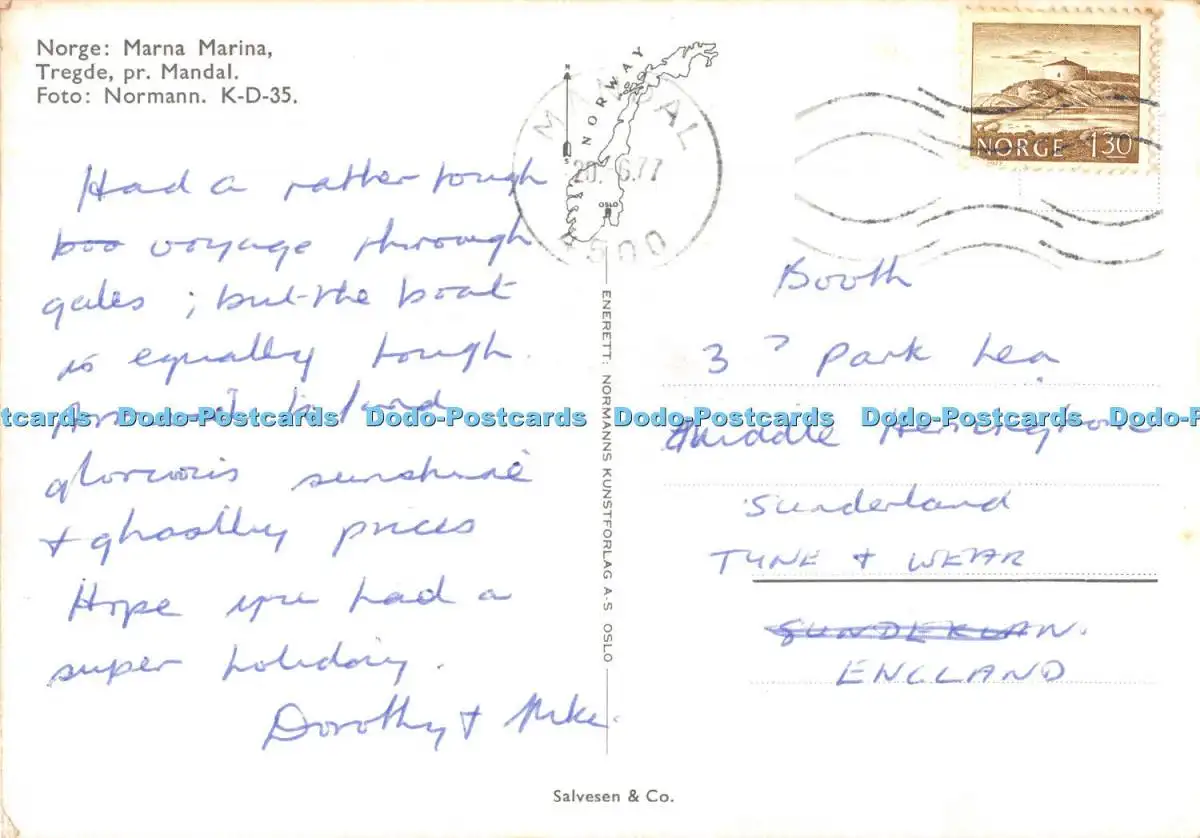 Norge: Marna Marina,
Tregde, pr. Mandal.
Foto: Normann. K-D-35.
Had a rather tough
boo voyage through
gales ; but the boat
is equally tough.
glorious sunshine
+ ghastly prices
Hope you had a
super holiday.
Dorothy + Mike.
NORWAY
N
S
OSLO
MANDAL
20.-6.77
4500
NORGE 130
1977
ENERETT: NORMANNS KUNSTFORLAG A-S OSLO
Booth
3 ? Park Lea
Middle Herrington
Sunderland
TYNE + WEAR
SUNDERLAN.
ENGLAND
Salvesen & Co.
Dodo-Postcards Dodo-Postcards Dodo-Postcards Dodo-Postcards